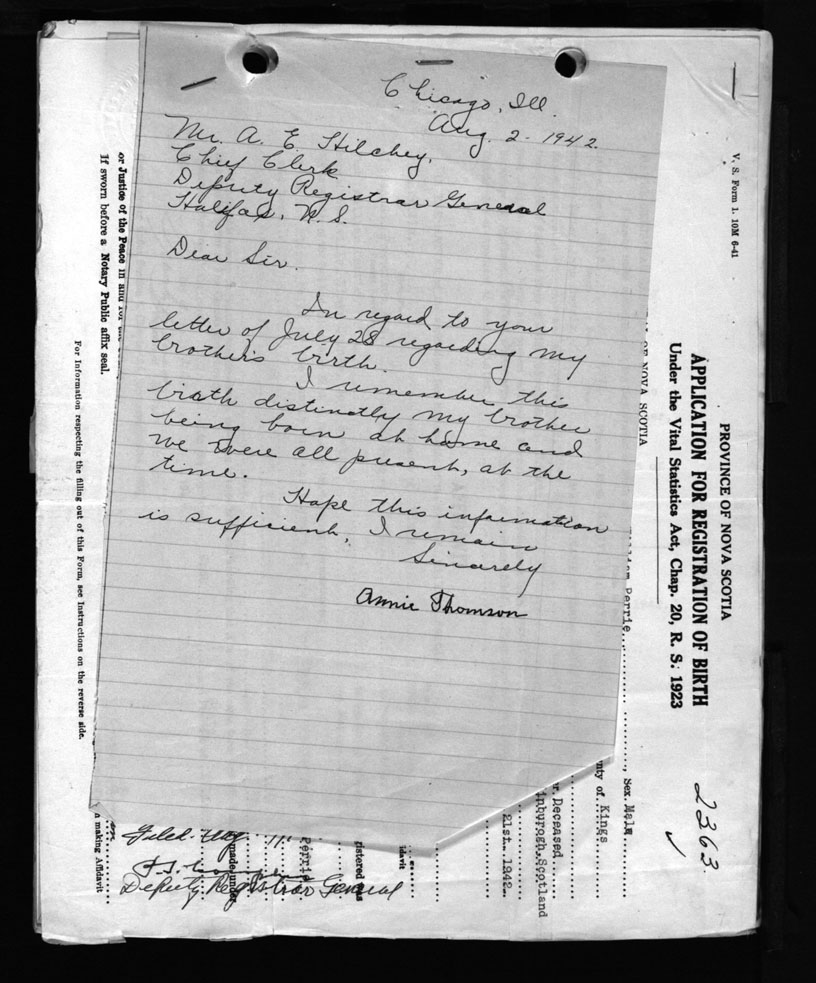 Chicago, Ill.
Aug. 2 - 1942.
Mr. A. E. Hilchey,
Chief Clerk
Deputy Registrar General
Halifax, N. S.
Dear Sir.
In regard to your
letter of July 28 regarding my
brother's birth.
I remember this
birth distinctly my brother
being born at home and
we were all present, at the
time.
Hope this information
is sufficient, I remain
Sincerely
Annie Thomson
V. S. Form 1. 10M 6-41
PROVINCE OF NOVA SCOTIA
APPLICATION FOR REGISTRATION OF BIRTH
Under the Vital Statistics Act, Chap. 20, R. S. 1923
2363
OF NOVA SCOTIA
Perrie
Sex. Male
nty of Kings
r. Deceased
inburogh, Scotland
21st. 1942
gistered as
idavit
Perrie
made under
Filed. 11
Deputy Registrar General
n making Affidavit
or Justice of the Peace in and for the
If sworn before a Notary Public affix seal.
For Information respecting the filling out of this Form, see Instructions on the reverse side.